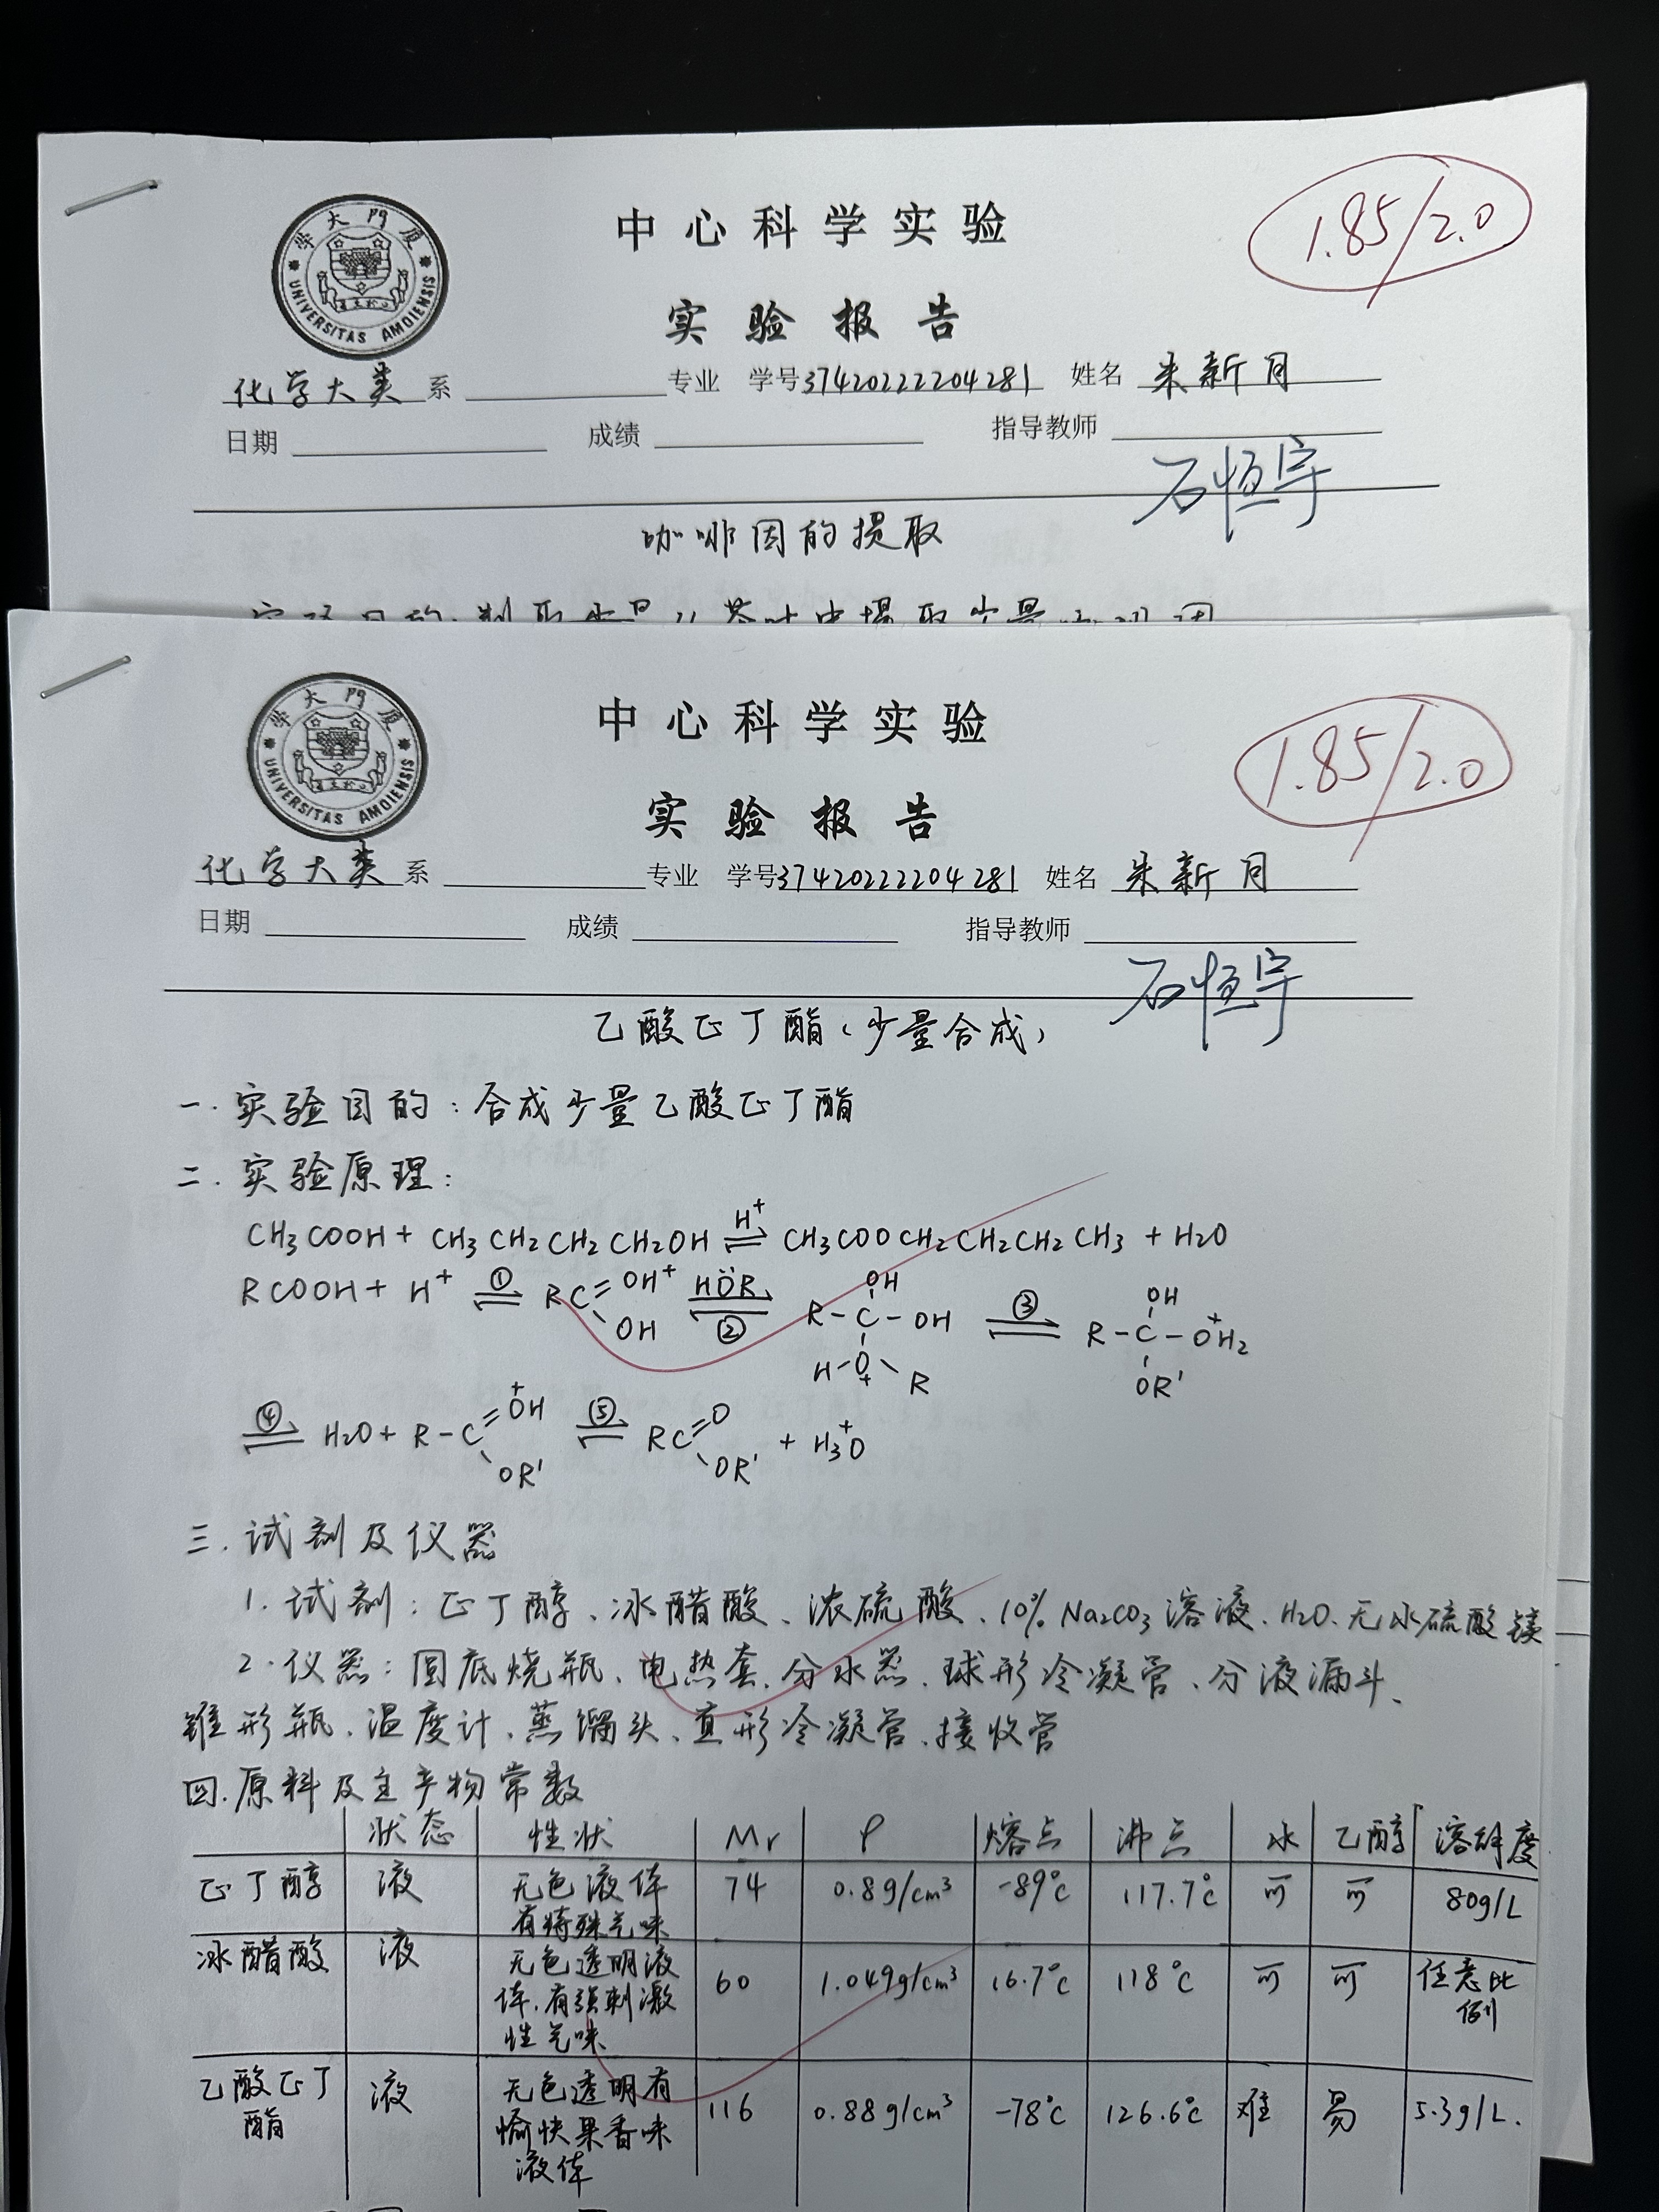 厦门大学
UNIVERSITAS AMOIENSIS
中心科学实验
1.85/2.0
实验报告
化学大类 系 专业 学号 37420222204281 姓名 朱新月
日期 成绩 指导教师
石恒宇
咖啡因的提取
厦门大学
UNIVERSITAS AMOIENSIS
中心科学实验
1.85/2.0
实验报告
化学大类 系 专业 学号 37420222204281 姓名 朱新月
日期 成绩 指导教师
石恒宇
乙酸正丁酯(少量合成)
一. 实验目的: 合成少量乙酸正丁酯
二. 实验原理:
CH3COOH + CH3CH2CH2CH2OH ⇌ H+ CH3COOCH2CH2CH2CH3 + H2O
RCOOH + H+ ⇌ ① RC=OH+ OH ⇌ HÖR ② R-C-OH OH H-O+ R ⇌ ③ R-C-O+H2 OH OR'
⇌ ④ H2O + R-C=O+H OR' ⇌ ⑤ RC=O OR' + H3O+
三. 试剂及仪器
1. 试剂: 正丁醇、冰醋酸、浓硫酸、10% Na2CO3溶液、H2O、无水硫酸镁
2. 仪器: 圆底烧瓶、电热套、分水器、球形冷凝管、分液漏斗、
锥形瓶、温度计、蒸馏头、直形冷凝管、接收管
四. 原料及主产物常数
状态 性状 Mr ρ 熔点 沸点 水 乙醇 溶解度
正丁醇 液 无色液体有特殊气味 74 0.8g/cm³ -89℃ 117.7℃ 可 可 80g/L
冰醋酸 液 无色透明液体,有强刺激性气味 60 1.049g/cm³ 16.7℃ 118℃ 可 可 任意比例
乙酸正丁酯 液 无色透明有愉快果香味液体 116 0.88g/cm³ -78℃ 126.6℃ 难 易 5.3g/L.